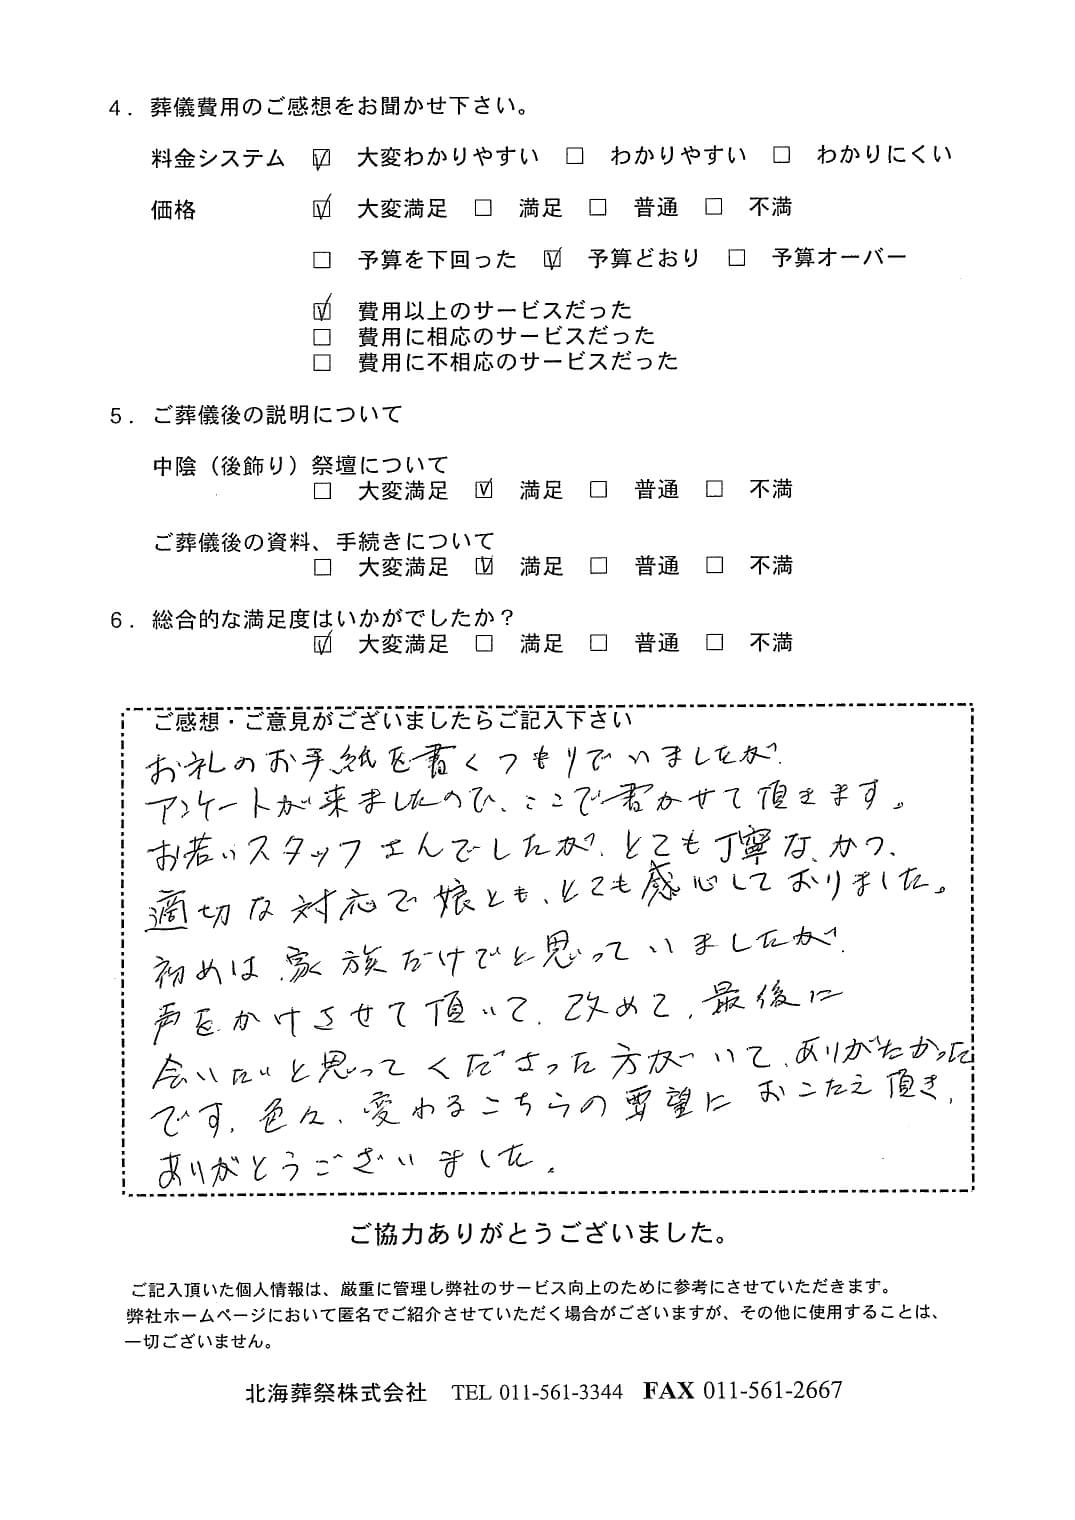 4．葬儀費用のご感想をお聞かせ下さい。
料金システム ☑ 大変わかりやすい □ わかりやすい □ わかりにくい
価格 ☑ 大変満足 □ 満足 □ 普通 □ 不満
□ 予算を下回った ☑ 予算どおり □ 予算オーバー
☑ 費用以上のサービスだった
□ 費用に相応のサービスだった
□ 費用に不相応のサービスだった
5．ご葬儀後の説明について
中陰（後飾り）祭壇について
□ 大変満足 ☑ 満足 □ 普通 □ 不満
ご葬儀後の資料、手続きについて
□ 大変満足 ☑ 満足 □ 普通 □ 不満
6．総合的な満足度はいかがでしたか？
☑ 大変満足 □ 満足 □ 普通 □ 不満
ご感想・ご意見がございましたらご記入下さい
お礼のお手紙を書くつもりでいましたが、
アンケートが来ましたので、ここで書かせて頂きます。
お若いスタッフさんでしたが、とても丁寧な、かつ、
適切な対応で娘とも、とても感心しておりました。
初めは、家族だけでと思っていましたが、
声をかけさせて頂いて、改めて、最後に
会いたいと思ってくださった方がいて、ありがたかった
です。色々、変わるこちらの要望におこたえ頂き、
ありがとうございました。
ご協力ありがとうございました。
ご記入頂いた個人情報は、厳重に管理し弊社のサービス向上のために参考にさせていただきます。
弊社ホームページにおいて匿名でご紹介させていただく場合がございますが、その他に使用することは、
一切ございません。
北海葬祭株式会社 TEL 011-561-3344 FAX 011-561-2667